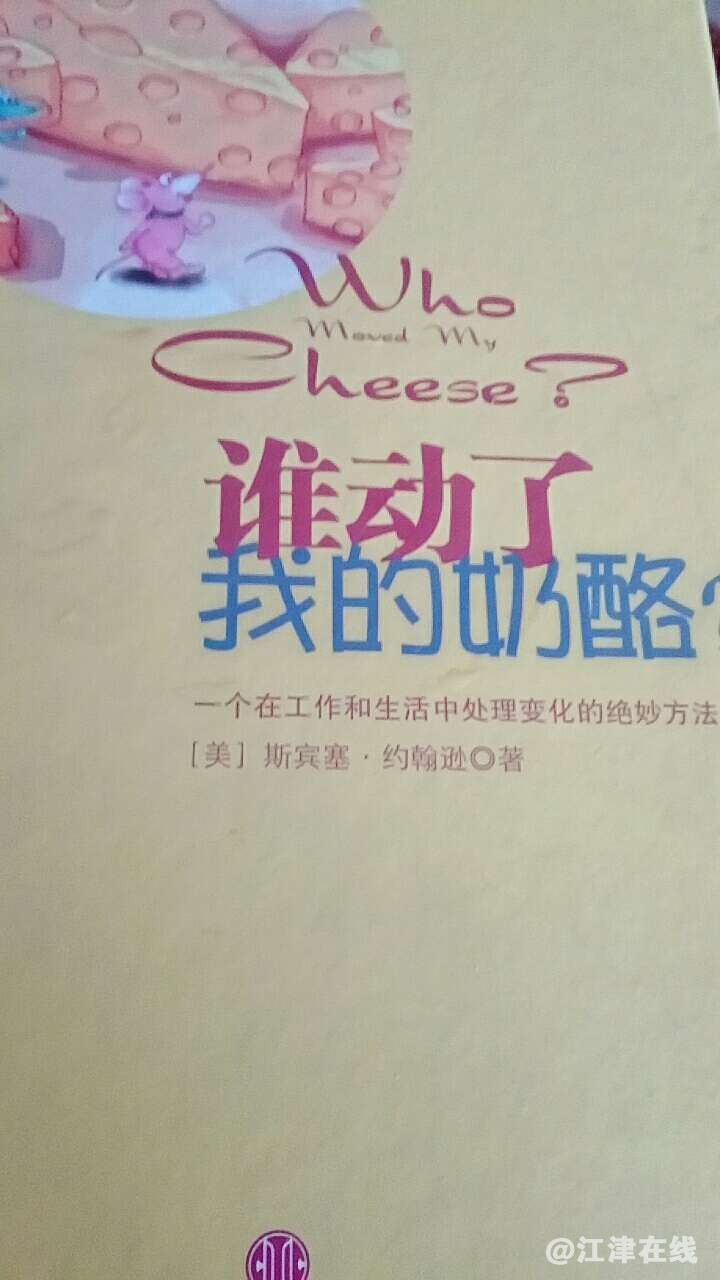 Who
Moved My
Cheese?
谁动了
我的奶酪?
一个在工作和生活中处理变化的绝妙方法
[美] 斯宾塞·约翰逊◎著
@江津在线